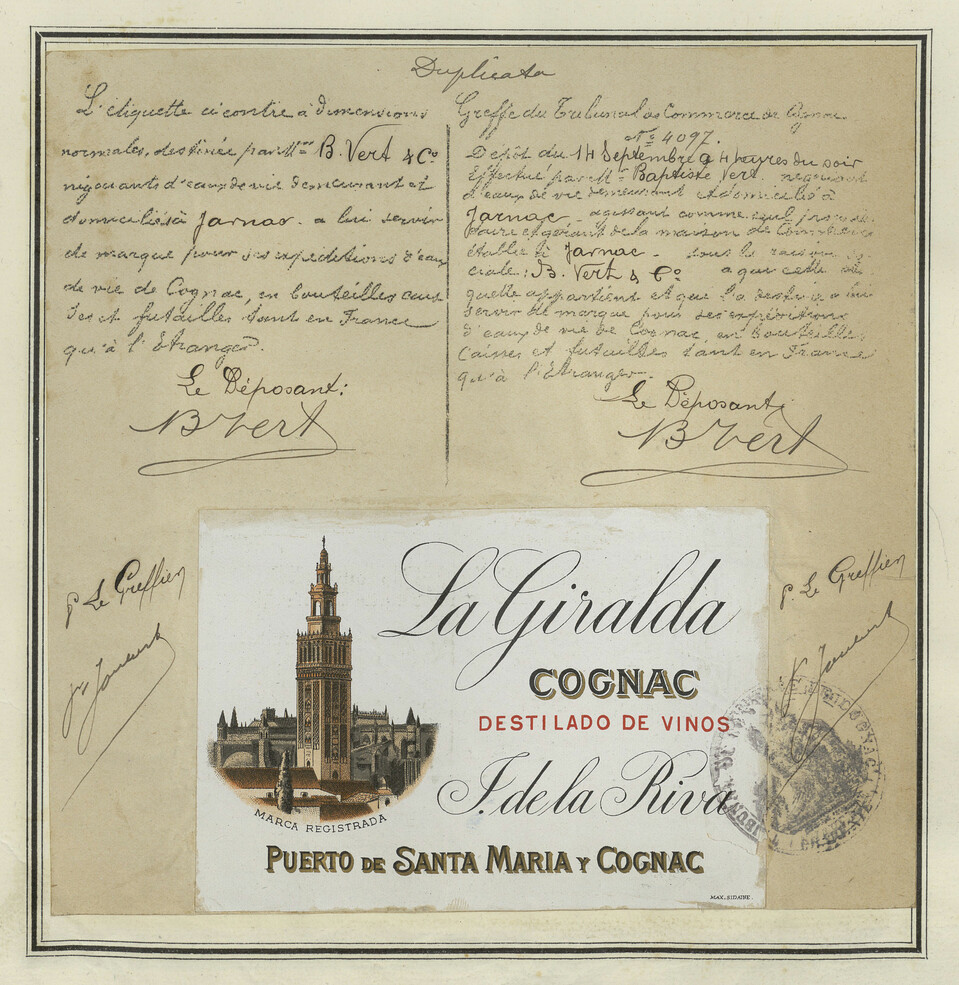 Duplicata
L'étiquette ci contre à dimensions
normales, destinée par Mrs B. Vert & Co
négociants d'eaux de vie demeurant et
domiciliés à Jarnac a lui servir
de marque pour ses expéditions d'eaux
de vie de Cognac, en bouteilles cais
ses et futailles tant en France
qu'à l'Etranger.
Le Déposant:
B Vert
Greffe du Tribunal de Commerce de Cognac
No 4097.
Dépôt du 14 Septembre à 4 heures du soir
effectué par Mr Baptiste Vert négociant
d'eaux de vie demeurant et domicilié à
Jarnac agissant comme seul
et gérant de la maison de Commerce
établie à Jarnac sous la raison
ciale: B. Vert & Co a qui cette éti
quette appartient et que l'a destinée a lui
servir de marque pour ses expéditions
d'eaux de vie de Cognac, en bouteilles
Caisses et futailles tant en France
qu'à l'Etranger.
Le Déposant,
B Vert
p. Le Greffier
p. Le Greffier
La Giralda
COGNAC
DESTILADO DE VINOS
J. de la Riva
MARCA REGISTRADA
PUERTO DE SANTA MARIA Y COGNAC
MAX. SIDAINE.